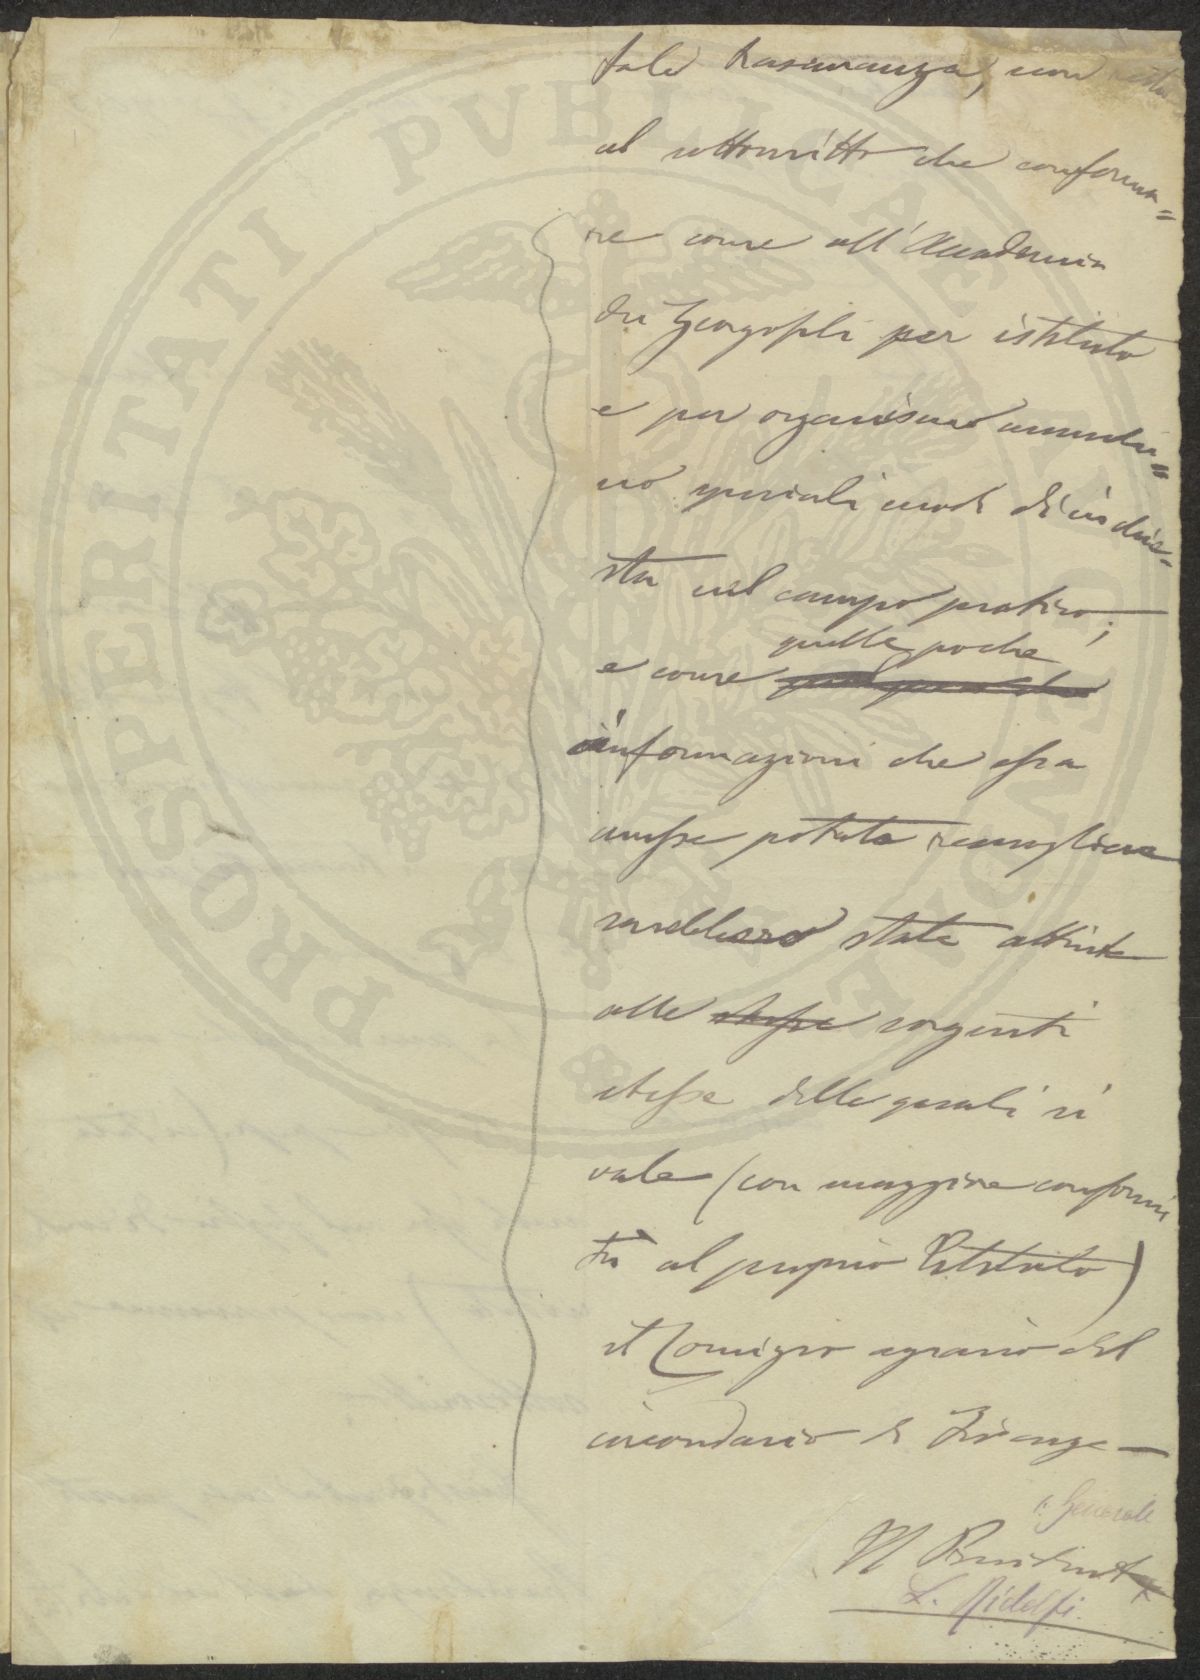 tale trascuranza, non resta
al sottoscritto che conferma=
re come all'Accademia
dei Georgofili per istituto
e per organismo manchi=
no speciali modi di inchie=
sta nel campo pratico;
e come quelle poche
informazioni che essa
avesse potuto raccogliere
sarebbero state attinte
alle stesse sorgenti
stesse delle quali si
vale (con maggiore conformi
tà al proprio Istituto)
il Comizio agrario del
circondario di Firenze —
Generale
Il Presidente
L. Ridolfi
PROSPERITATI PVBLICAE AVGENDAE